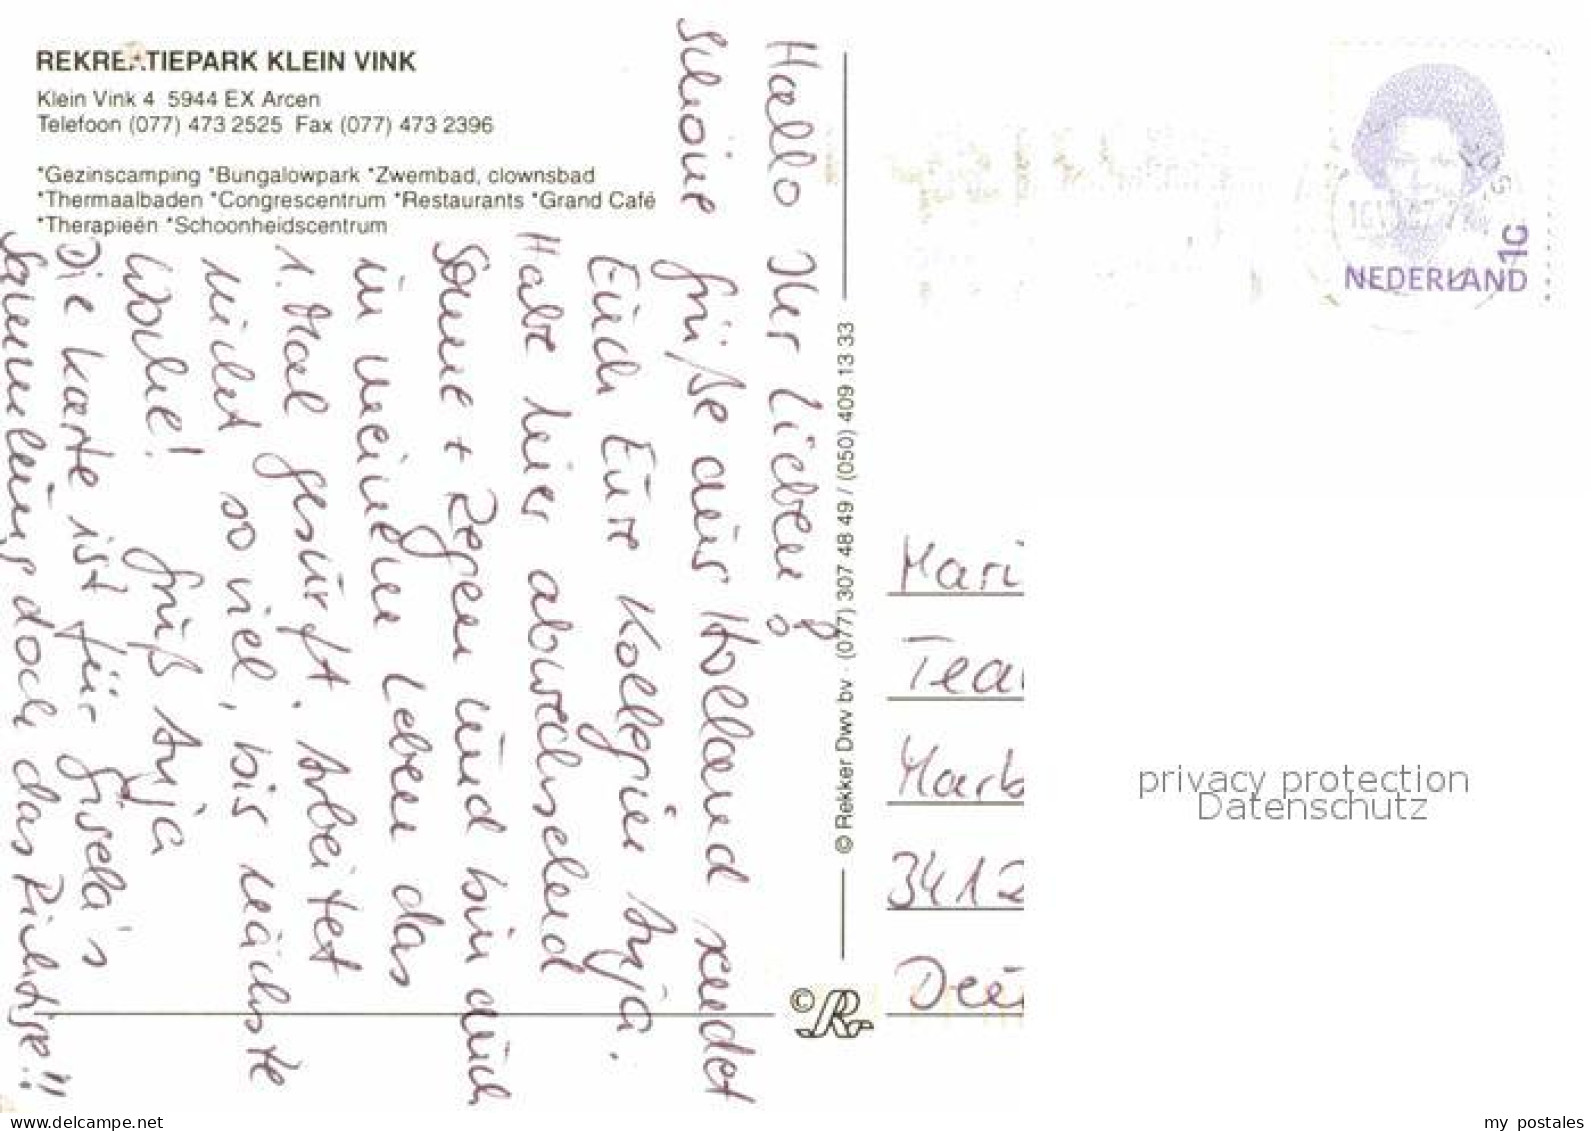 REKREATIEPARK KLEIN VINK
Klein Vink 4 5944 EX Arcen
Telefoon (077) 473 2525 Fax (077) 473 2396
*Gezinscamping *Bungalowpark *Zwembad, clownsbad
*Thermaalbaden *Congrescentrum *Restaurants *Grand Café
*Therapieën *Schoonheidscentrum
Hallo Ihr Lieben!
Schöne Grüße aus Holland sendet
Euch Eure Kollegin Anja.
Habe hier abwechselnd
Sonne + Regen und bin auch
in meinem Leben das
1. Mal gesurft. Arbeitet
nicht so viel, bis nächste
Woche! Gruß Anja
Die Karte ist für Gisela's
Sammlung doch das Richtige!!
© Rekker Dwv bv · (077) 307 48 49 / (050) 409 13 33
©R
NEDERLAND
1G
Mari
Tea
Marb
3412
privacy protection
Datenschutz
www.delcampe.net
my_postales